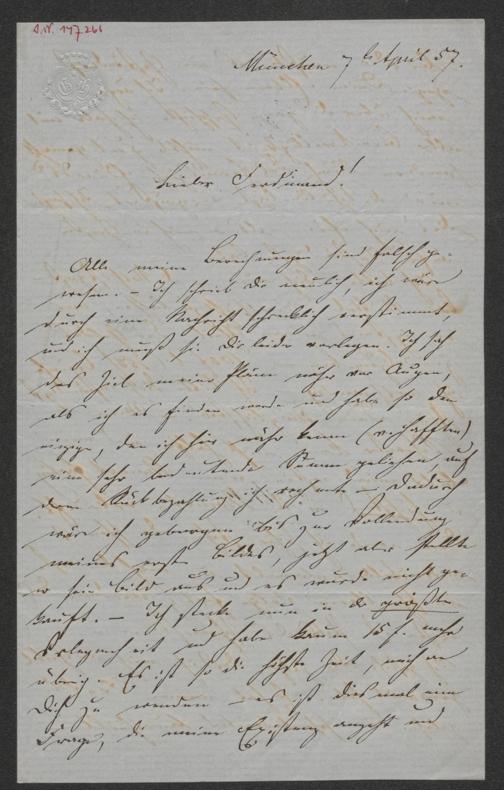 I.N. 147.266
München 7 t. April 57.
Lieber Ferdinand!
Alle meine Berechnungen sind falsch ge-
wesen. – Ich schrieb Dir neulich ich wäre
durch eine Nachricht schrecklich verstimmt,
und ich muß sie Dir leider vorlegen. Ich sah
das Ziel meiner Pläne näher vor Augen,
als ich es finden werde und habe so dem
einzigen, den ich hier näher kenne
eine sehr bedeutende Summe geliehen, auf
deren Rückbezahlung ich rechnete – dadurch
wäre ich geborgen bis zur Vollendung
meines ersten Bildes, jetzt aber stellte
er sein Bild aus und es wurde nicht ge-
kauft. – Ich stecke nun in der größten
Verlegenheit und habe kaum 15 f. mehr
übrig. Es ist so die höchste Zeit, mich an
Dich zu wenden – es ist diesmal eine
Frage, die meine Existenz angeht und